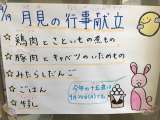 9/19 月見の行事献立
☆鶏肉とさといもの煮もの
☆豚肉とキャベツのいためもの
☆みたらしだんご
☆ごはん
☆牛乳
今年の十五夜は